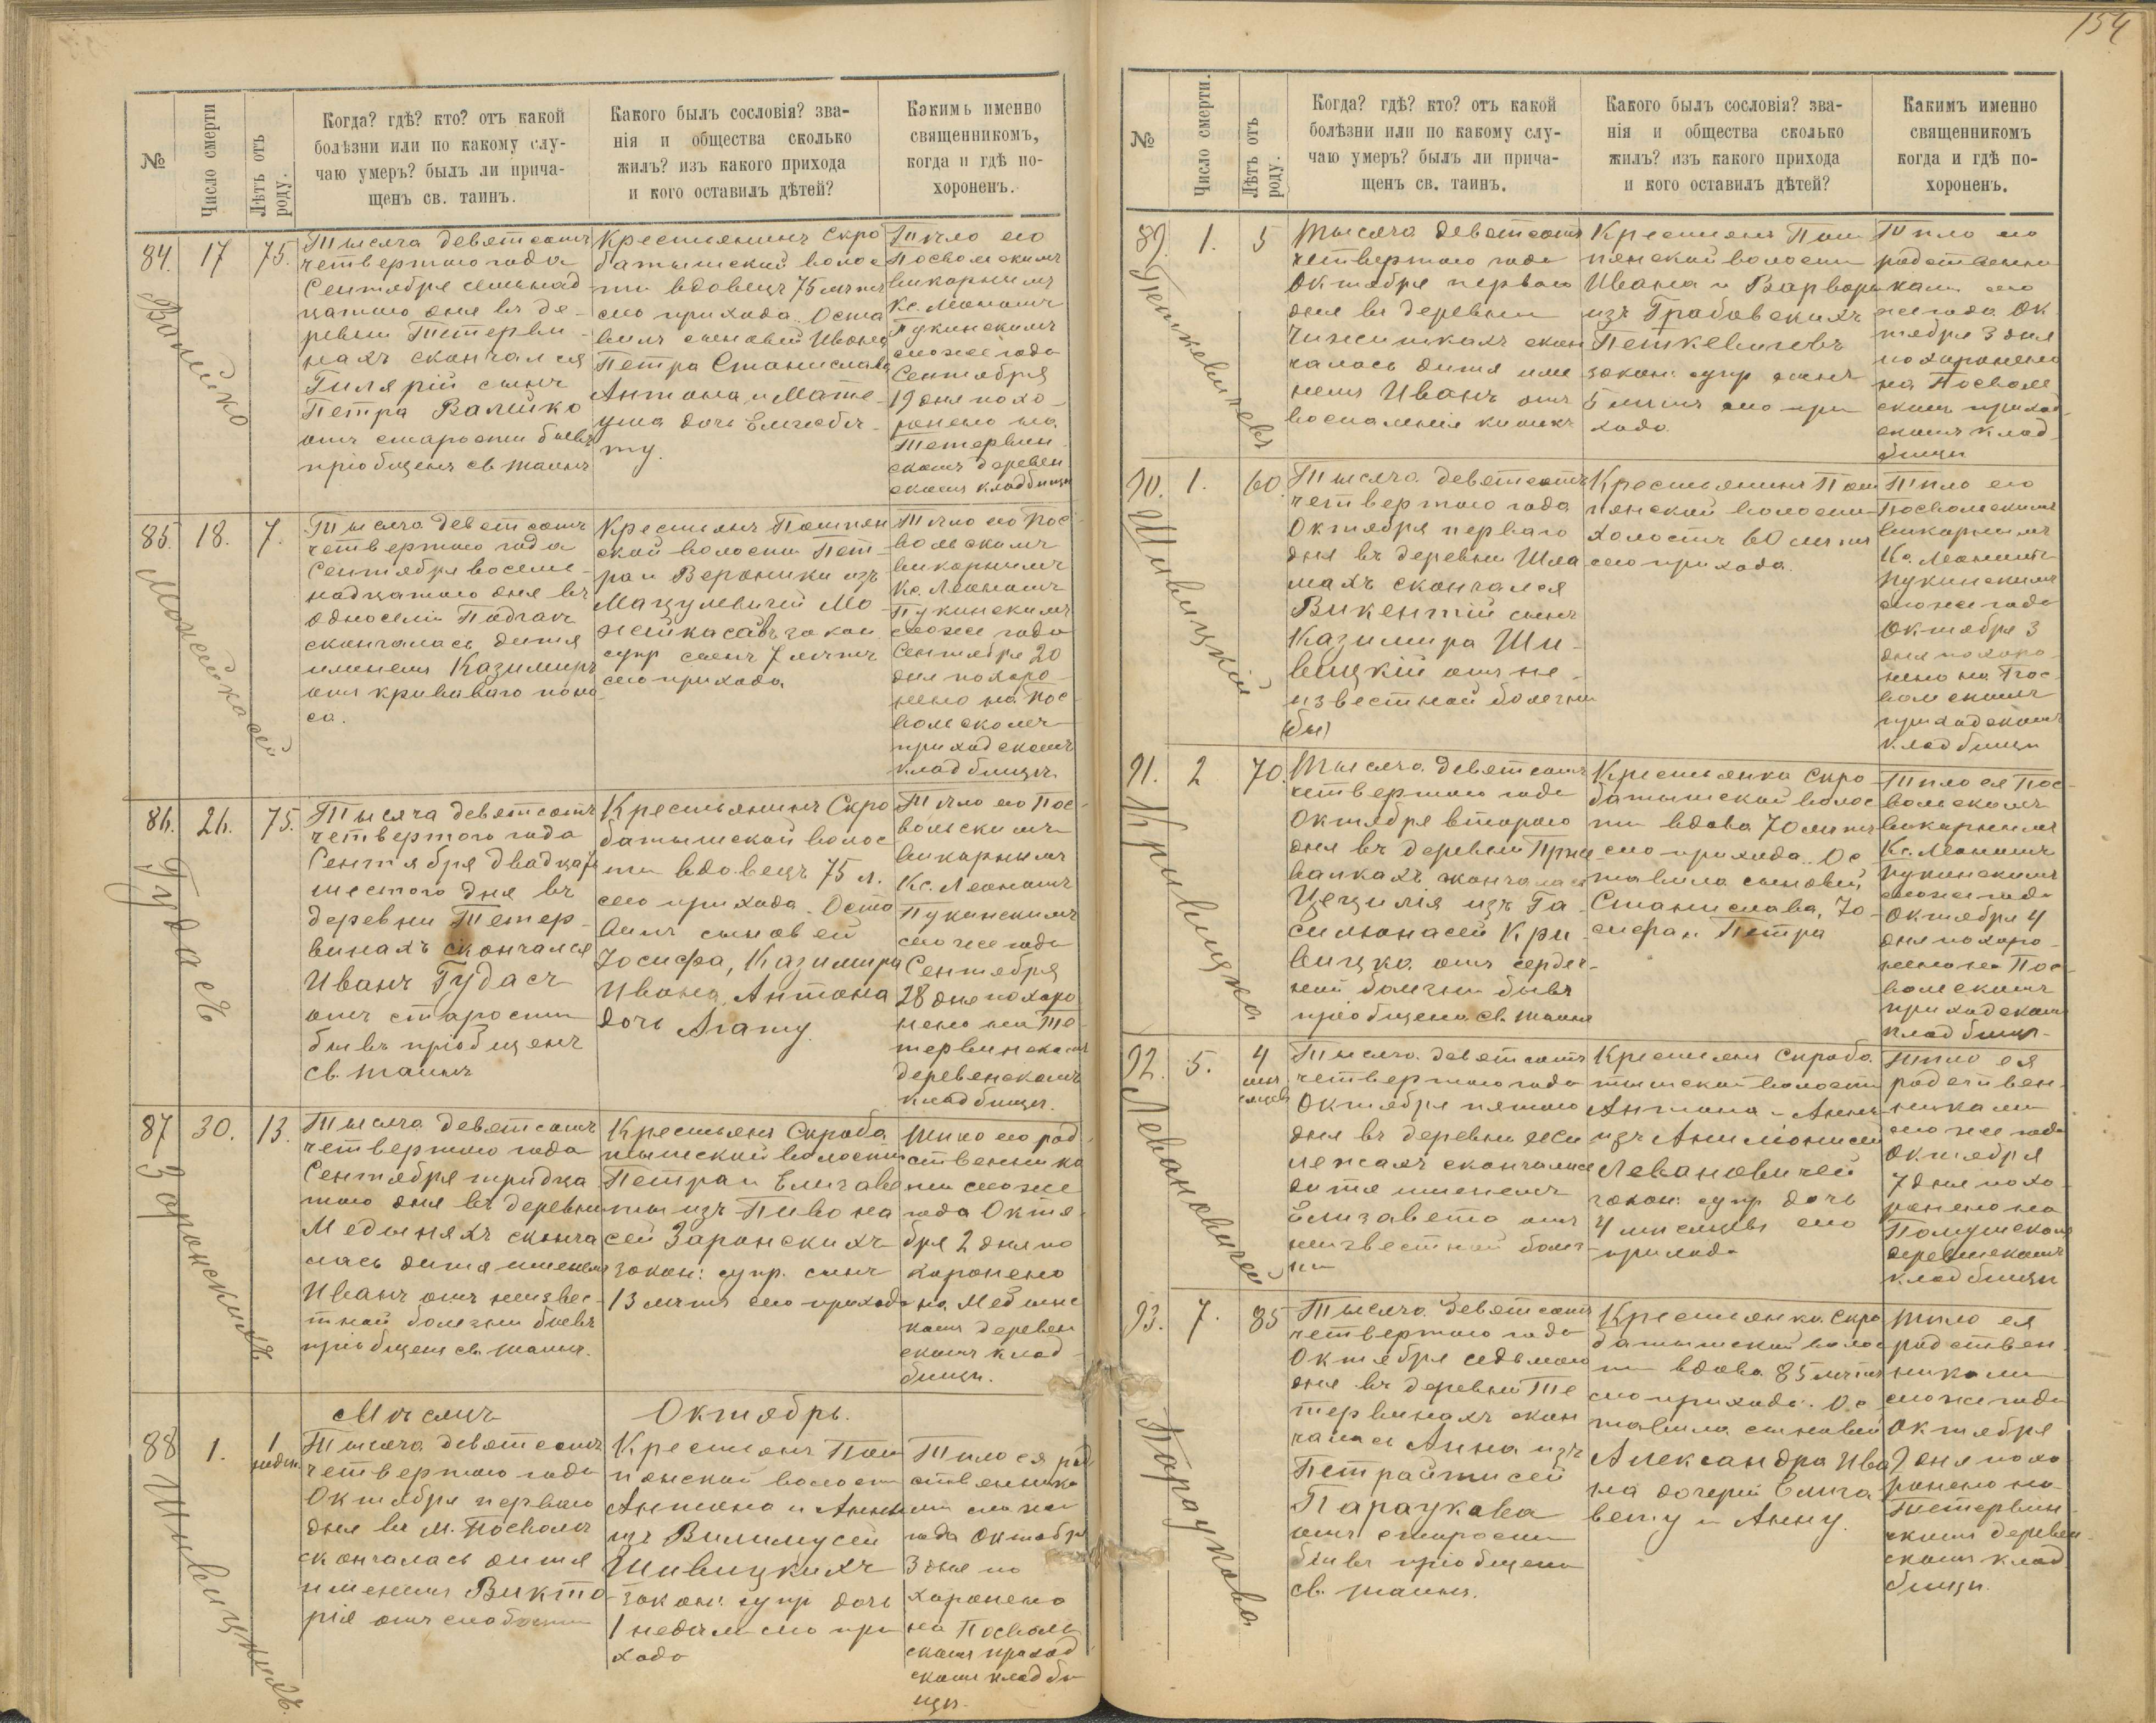 154
№
Число смерти
Лѣтъ отъ роду.
Когда? гдѣ? кто? отъ какой
болѣзни или по какому слу-
чаю умеръ? былъ ли прича-
щенъ св. таинъ.
Какого былъ сословія? зва-
нія и общества сколько
жилъ? изъ какого прихода
и кого оставилъ дѣтей?
Какимъ именно
священникомъ,
когда и гдѣ по-
хороненъ.
84.
Валейко
17
75.
Тысяча девятсотъ
четвертого года
Сентября семьнад
цатого дня въ де-
ревни Тетерви-
нахъ скончался
Гилярій сынъ
Петра Валейко
отъ старости бывъ
пріобщенъ св таинъ
Крестьянинъ Скро
батышской волос
ти вдовецъ 75 лѣтъ
сего прихода. Оста
вилъ сыновей Ивана
Петра Станислава
Антона и Мате-
уша дочь Елисабе-
ту.
Тѣло его
Посвольскимъ
викарнымъ
Кс. Леономъ
Пукинскимъ
сего же года
Сентября
19 дня похо-
ронено на
Тетервин
скомъ деревен
скомъ кладбищи
85.
18.
7.
Тысяча девятсотъ
четвертого года
Сентября восем-
надцатого дня въ
односелии
скончалась дитя
именемъ Казимиръ
отъ криваваго поно
са.
Крестьянъ Помпян
ской волости Пет-
ра и Вероники изъ
Мацулевичей Мо-
жейкасовъ закон
супр сынъ 7 лѣтъ
сего прихода
Тѣло его Пос-
вольскимъ
викарнымъ
Кс. Леономъ
Пукинскимъ
сегоже года
Сентября 20
дня похоро-
нено на Пос-
вольскомъ
приходскомъ
кладбищи.
86.
Гудасъ
26.
75.
Тысяча девятсотъ
четвертого года
Сентября двадцать
шестого дня въ
деревни Тетер-
винахъ скончался
Иванъ Гудасъ
отъ старости
бывъ пріобщенъ
св. таинъ
Крестьянинъ Скро
батышской волос
ти вдовецъ 75 л.
сего прихода. Оста
вилъ сыновей
Іосифа, Казимира
Ивана, Антона
дочь Агату.
Тѣло его Пос-
вольскимъ
викарнымъ
Кс. Леономъ
Пукинскимъ
сегоже года
Сентября
28 дня похоро
нено на Те-
тервинскомъ
деревенскомъ
кладбищи.
87
Заронскихъ
30.
13.
Тысяча девятсотъ
четвертого года
Сентября тридца
того дня въ деревни
Медыняхъ сконча
лась дитя именемъ
Иванъ отъ неизвес-
тной болезни бывъ
пріобщенъ св. таинъ.
Крестьянъ Скроба
тышской волости
Петра и Елизаве
ты изъ Пивона
сей Заронскихъ
закон: супр. сынъ
13 лѣтъ сего прихода
Тѣло его род
ственника
ми сегоже
года Октя-
бря 2 дня по
хоронено
на Медынс
комъ деревен
скомъ клад
бищи.
Мѣсяцъ Октябрь.
88
Шивицкихъ
1.
1
недѣл.
Тысяча девятсотъ
четвертого года
Октября первого
дня въ м. Посволѣ
скончалась дитя
именемъ Викто
рія отъ слабости
Крестьянъ Пом
пянской волости
Антона и Анны
изъ Вилимусей
Шивицкихъ
закон: супр дочь
1 недѣли сего при
хода
Тѣло ея род
ственника
ми сего же
года Октября
3 дня по
хоронено
на Посволь
скомъ приход
скомъ кладби
щи.
№
Число смерти.
Лѣтъ отъ роду.
Когда? гдѣ? кто? отъ какой
болѣзни или по какому слу-
чаю умеръ? былъ ли прича-
щенъ св. таинъ.
Какого былъ сословія? зва-
нія и общества сколько
жилъ? изъ какого прихода
и кого оставилъ дѣтей?
Какимъ именно
священникомъ
когда и гдѣ по-
хороненъ.
89.
Петкевичевъ
1.
5
Тысяча девятсотъ
четвертого года
Октября первого
дня въ деревни
Чижишкахъ скон
чалась дитя име
немъ Иванъ отъ
воспаленія кишекъ
Крестьянъ Пом
пянской волости
Ивана и Варвары
изъ Грабовскихъ
Петкевичевъ
закон: супр сынъ
5 лѣтъ сего при
хода.
Тѣло его
родственни
ками сего
же года Ок
тября 3 дня
похоронено
на Посволь
скомъ приход
скомъ клад
бищи
90.
Шивицкій
1.
60.
Тысяча девятсотъ
четвертого года
Октября первого
дня въ деревни Шла
махъ скончался
Викентій сынъ
Казимира Ши-
вицкій отъ не-
известной болезни
(бы)
Крестьянинъ Пом
пянской волости
холостъ 60 лѣтъ
сего прихода.
Тѣло его
Посвольскимъ
викарнымъ
Кс. Леономъ
Пукинскимъ
сегоже года
Октября 3
дня похоро-
нено на Пос-
вольскомъ
приходскомъ
кладбищи
91.
Кривицка
2
70.
Тысяча девятсотъ
четвертого года
Октября второго
дня въ деревни
скончалась
Цецилія изъ Га-
силюнасей Кри-
вицка отъ сердеч-
ной болезни бывъ
пріобщена св. таинъ
Крестьянка Скро
батышской волос
ти вдова 70 лѣтъ
сего прихода. Ос
тавила сыновей
Станислава, Іо-
сифа и Петра
Тѣло ея Пос-
вольскимъ
викарнымъ
Кс. Леономъ
Пукинскимъ
сегоже года
Октября 4
дня похоро-
нено на Пос-
вольскомъ
приходскомъ
кладбищи.
92.
Левановичей
5.
4
мѣсяцевъ
Тысяча девятсотъ
четвертого года
Октября пятого
дня въ деревни
скончалась
дитя именемъ
Елизавета отъ
неизвестной болез-
ни
Крестьянъ Скроба
тышской волости
Антона и Анны
изъ
Левановичей
закон: супр дочь
4 мѣсяцевъ сего
прихода
Тѣло ея
родствен-
никами
сего же года
Октября
7 дня похо-
ронено на
деревенскомъ
кладбищи
93.
Параукова
7.
85
Тысяча девятсотъ
четвертого года
Октября седьмого
дня въ деревни Те
тервинахъ скон
чалась Анна изъ
Петрайтисей
Параукова
отъ старости
бывъ пріобщена
св. таинъ.
Крестьянка Скро
батышской волос
ти вдова 85 лѣтъ
сего прихода. Ос
тавила сыновей
Александра Ива
на дочерей Елиза
вету и Анну.
Тѣло ея
родствен-
никами
сегоже года
Октября
9 дня похо
ронено на
Тетервин
скомъ деревен-
скомъ клад
бищи.